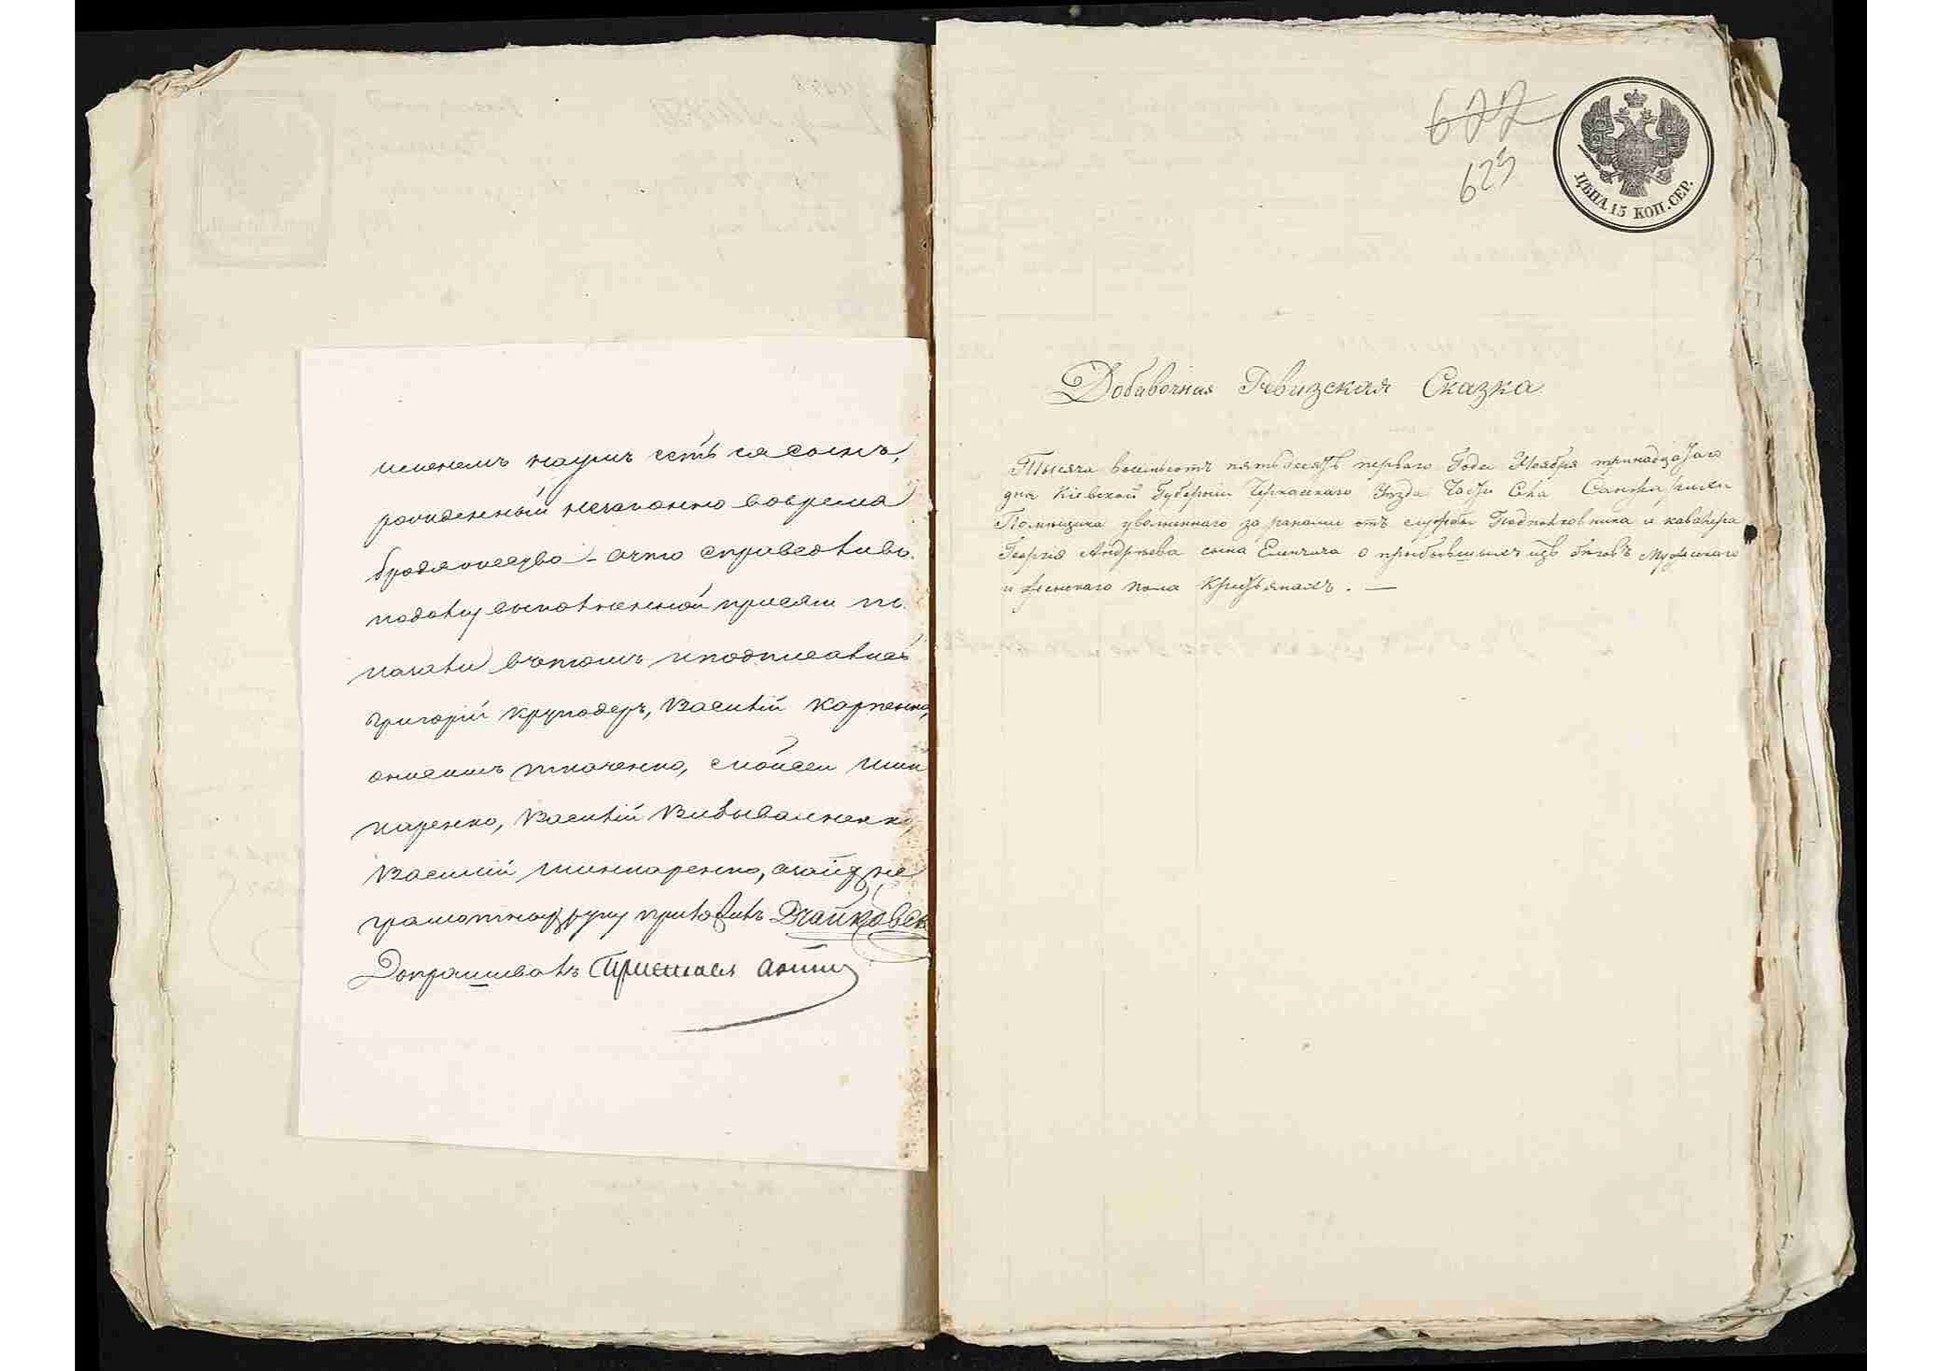 именемъ Наумъ есть ея сынъ,
рожденный незаконно вовремя
бродяжества – ачто справедливо
подову выполненной присяги по
казали вчемъ иподписались
Григорій Круподеръ, Василій Карпенко,
Онисимъ Ткаченко, Моисей Шин
каренко, Василій
Василій Шинкаренко, азаихъ не
грамотныхъ руку приложилъ
Допрашивалъ
622
623
ЦѢНА 15 КОП. СЕР.
Добавочная Ревизская Сказка
Тысяча восемьсотъ пятьдесятъ перваго Года Ноября тринадцатаго
дня Кіевской Губерніи Черкасскаго Уѣзда Части Села
Помѣщика уволеннаго за ранами отъ службы Подполковника и кавалера
Георгія Андрѣева сына Еленича о прибывшихъ изъ бѣговъ Мужескаго
и женскаго пола Крестьянахъ. —